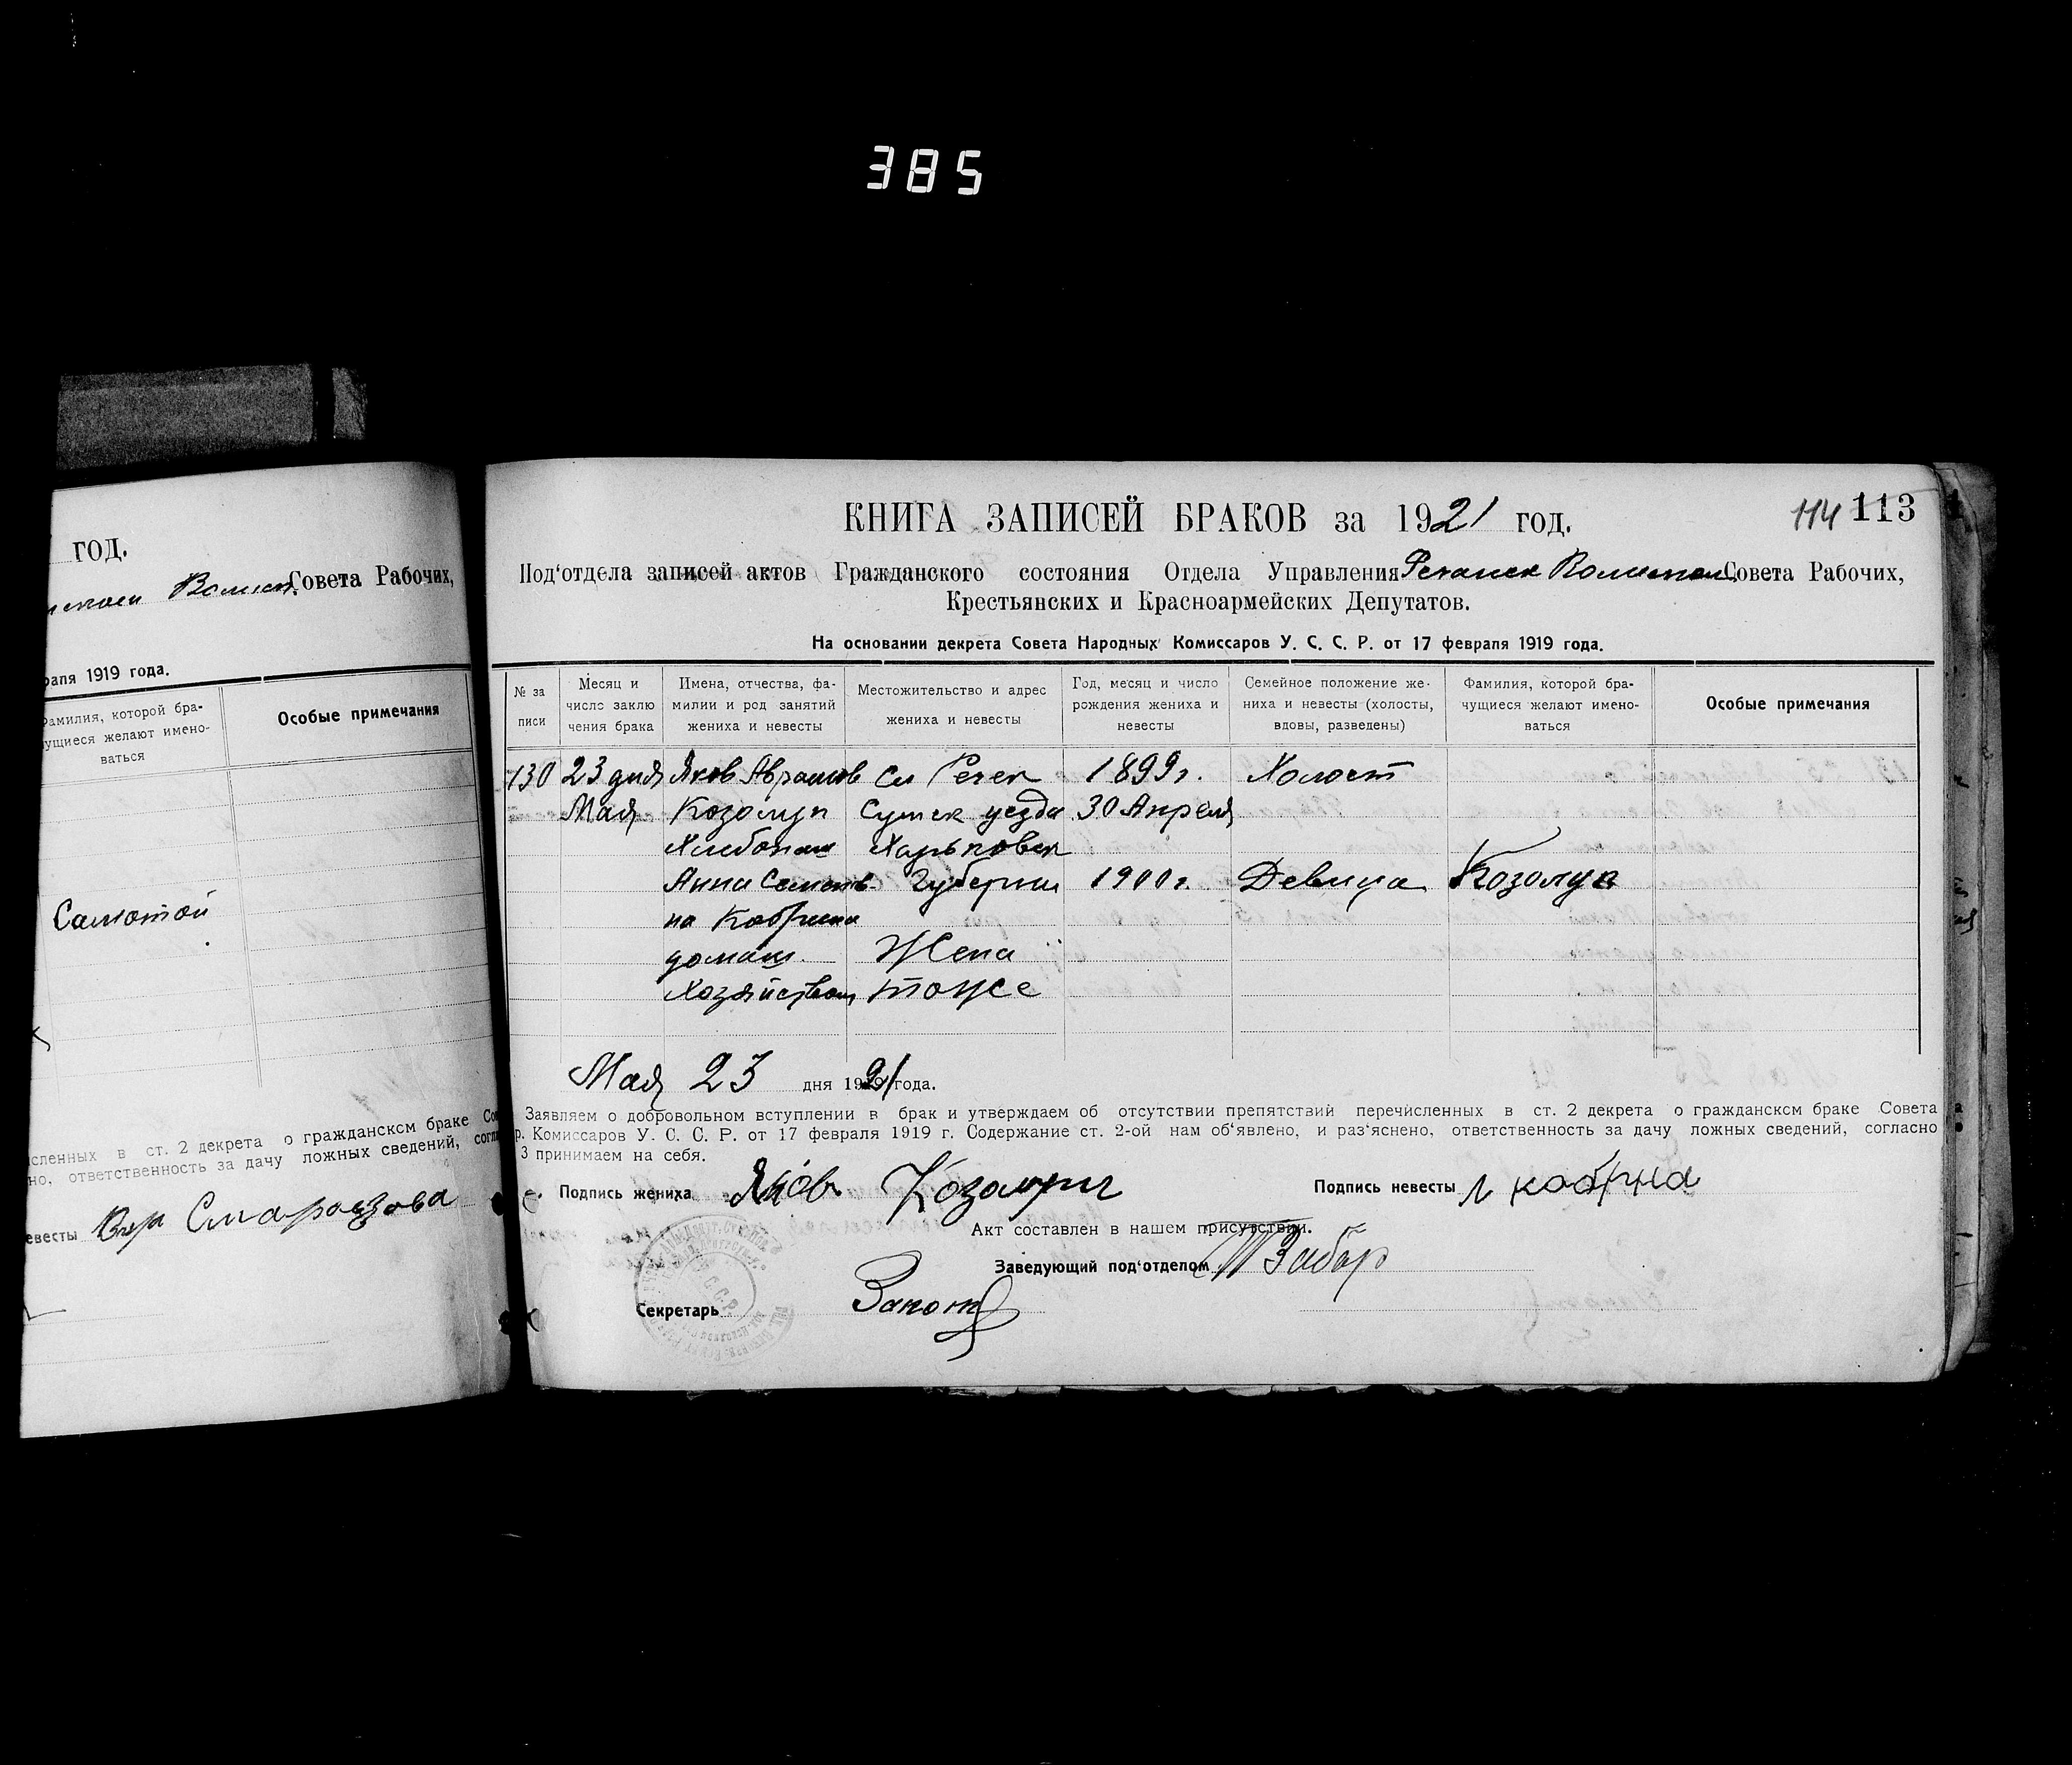 385
год.
Совета Рабочих,
1919 года.
Фамилия, которой бра-
чущиеся желают имено-
ваться
Особые примечания
Самотой
сленных в ст. 2 декрета о гражданском браке Со
но, ответственность за дачу ложных сведений, согла
евесты
КНИГА ЗАПИСЕЙ БРАКОВ за 1921 год.
114 113
Под‘отдела записей актов Гражданского состояния Отдела Управления Речанск Волистпол. Совета Рабочих,
Крестьянских и Красноармейских Депутатов.
На основании декрета Совета Народных Комиссаров У. С. С. Р. от 17 февраля 1919 года.
№ за
писи
Месяц и
число заклю
чения брака
Имена, отчества, фа-
милии и род занятий
жениха и невесты
Местожительство и адрес
жениха и невесты
Год, месяц и число
рождения жениха и
невесты
Семейное положение же-
ниха и невесты (холосты,
вдовы, разведены)
Фамилия, которой бра-
чущиеся желают имено-
ваться
Особые примечания
130 23 дня Яков Аврамов Сл Речек 1899г. Холост
Мая Козолуп Сумск уезда 30 Апреля
Хлебопаш Харьковск
Анна Семенов- Губернии 1900г. Девица Козолуп
на Кобрина
домаш. Жена
Хозяйством тоже
Мая 23 дня 1921 года.
Заявляем о добровольном вступлении в брак и утверждаем об отсутствии препятствий перечисленных в ст. 2 декрета о гражданском браке Совета
р. Комиссаров У. С. С. Р. от 17 февраля 1919 г. Содержание ст. 2-ой нам об‘явлено, и раз‘яснено, ответственность за дачу ложных сведений, согласно
3 принимаем на себя.
Подпись жениха Яков Козолуп Подпись невесты кобрина
Акт составлен в нашем присутствии.
Заведующий под‘отделом
Секретарь